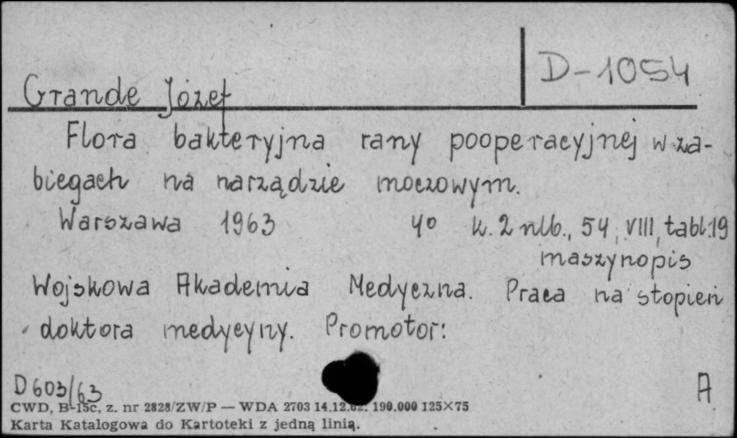 D-1054
Grande Józef
Flora bakteryjna rany pooperacyjnej w za-
biegach na narządzie moczowym.
Warszawa 1963 4° k. 2 nlb., 54, VIII, tabl. 19
maszynopis
Wojskowa Akademia Medyczna. Praca na stopień
doktora medycyny. Promotor:
D603/63
A
CWD, B-15c, z. nr 2828/ZW/P — WDA 2703 14.12.62. 190.000 125×75
Karta Katalogowa do Kartoteki z jedną linią.